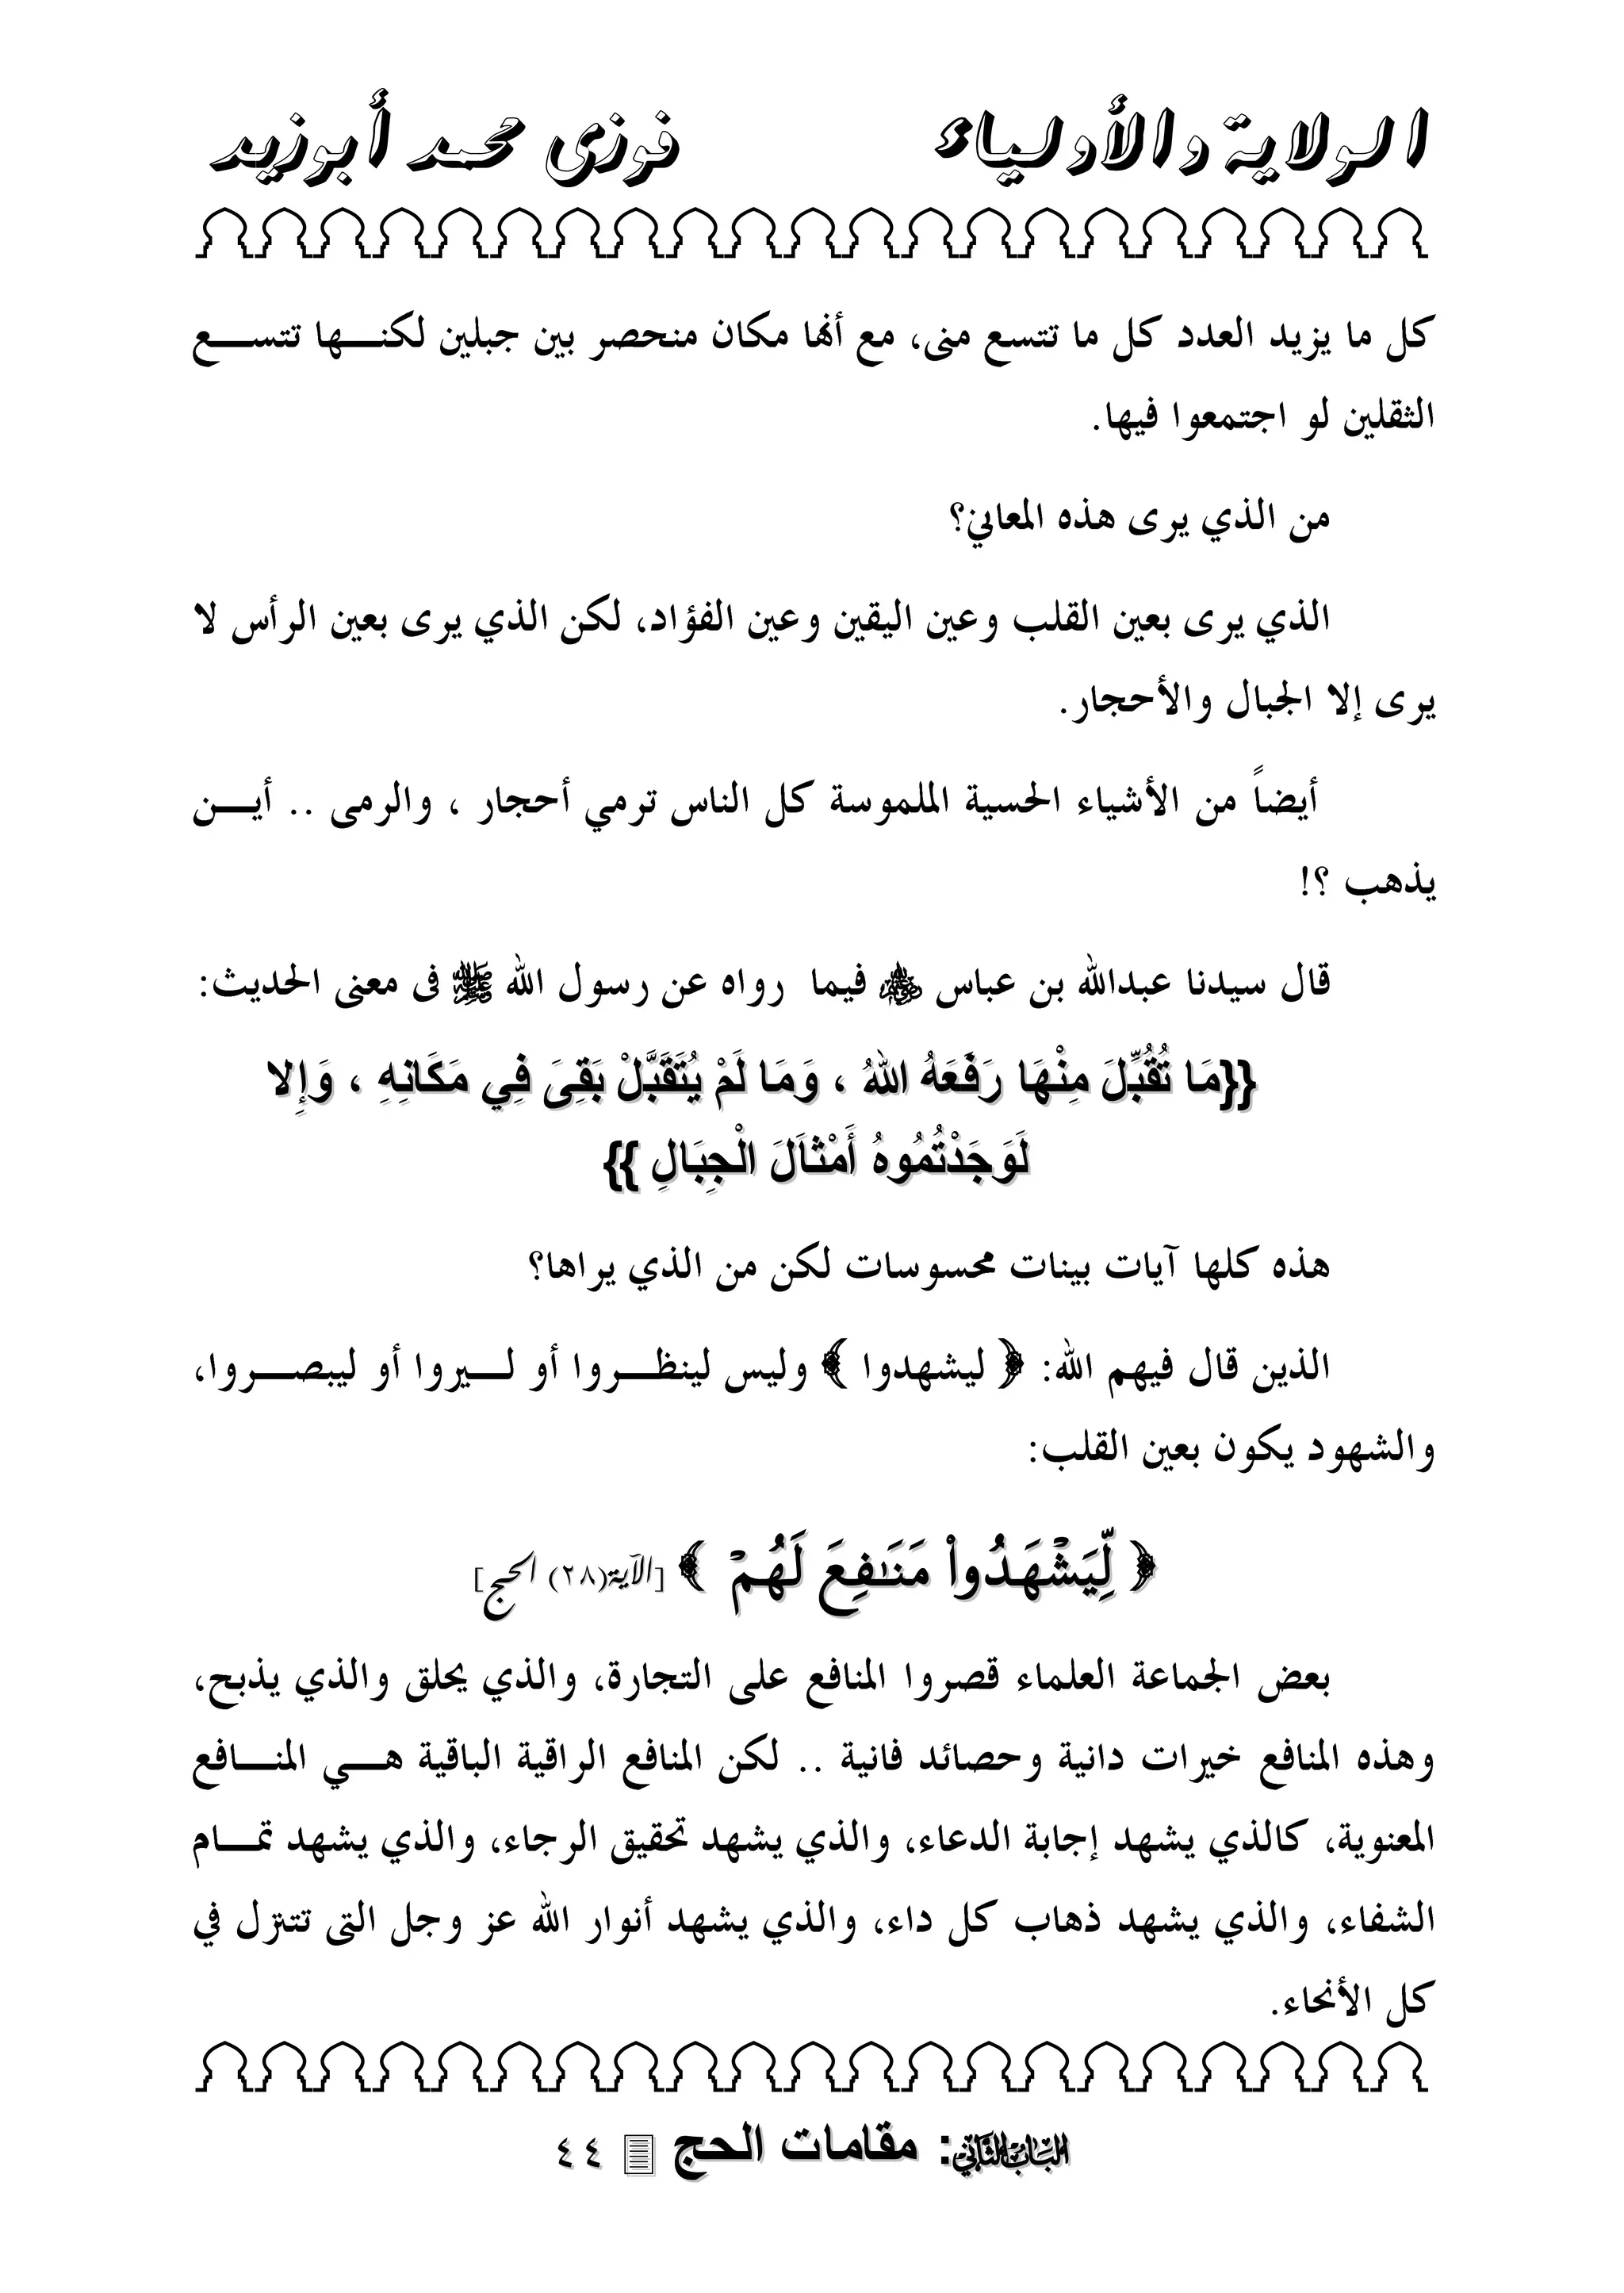 الولاية والأولياء فوزى محمد أبوزيد
كل ما يزيد العدد كل ما تتسع منى، مع أنها مكان منحصر بين جبلين لكنها تتسع
الثقلين لو اجتمعوا فيها.
من الذي يرى هذه المعاني؟
الذي يرى بعين القلب وعين اليقين وعين الفؤاد، لكن الذي يرى بعين الرأس لا
يرى إلا الجبال والأحجار.
أيضاً من الأشياء الحسية الملموسة كل الناس ترمي أحجار ، والرمى .. أين
يذهب ؟!
قال سيدنا عبدالله بن عباس رضي الله عنه فيما رواه عن رسول الله ﷺ فى معنى الحديث:
{{مَا تُقُبِّلَ مِنْهَا رَفَعَهُ اللهُ ، وَمَا لَمْ يُتَقَبَّلْ بَقِىَ فِي مَكَانِهِ ، وَإِلا
لَوَجَدْتُمُوهُ أَمْثَاَلَ الْجِبَالِ }}
هذه كلها آيات بينات محسوسات لكن من الذي يراها؟
الذين قال فيهم الله: ﴿ ليشهدوا ﴾ وليس لينظروا أو ليروا أو ليبصروا،
والشهود يكون بعين القلب:
﴿ لِّيَشْهَدُوا۟ مَنَـٰفِعَ لَهُمْ ﴾ [الآية(٢٨) الحج]
بعض الجماعة العلماء قصروا المنافع على التجارة، والذي يحلق والذي يذبح،
وهذه المنافع خيرات دانية وحصائد فانية .. لكن المنافع الراقية الباقية هي المنافع
المعنوية، كالذي يشهد إجابة الدعاء، والذي يشهد تحقيق الرجاء، والذي يشهد تمام
الشفاء، والذي يشهد ذهاب كل داء، والذي يشهد أنوار الله عز وجل التى تتنزل في
كل الأنحاء.
الباب الثاني: مقامات الحج ٤٤